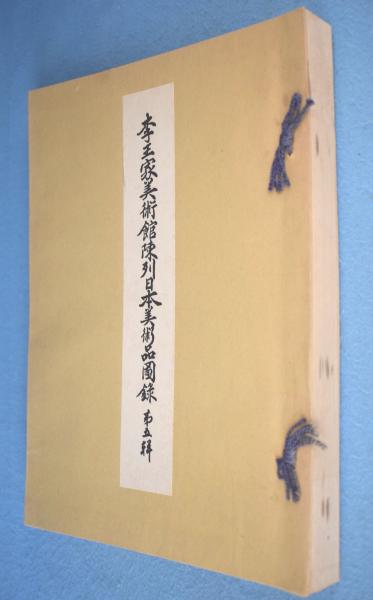 李王家美術館陳列日本美術品図録 第五輯